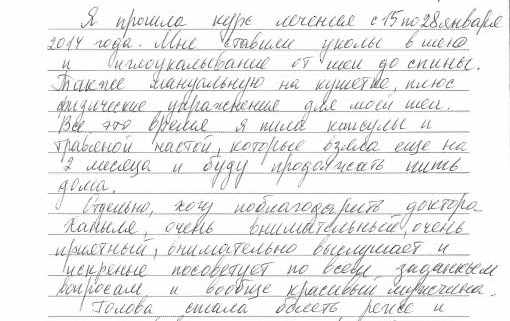 Я прошла курс лечения с 15 по 28 января
2014 года. Мне ставили уколы в шею
и иглоукалывание от шеи до спины.
Также мануальную на кушетке, плюс
физические упражнения для моей шеи.
Всё это время я пила капсулы и
травяной настой, которые взяла еще на
2 месяца и буду продолжать пить
дома.
Отдельно, хочу поблагодарить доктора
очень внимательный, очень
приятный, внимательно выслушает и
искренне посоветует по всем заданным
вопросам и вообще красивый мужчина.
Голова стала болеть реже и